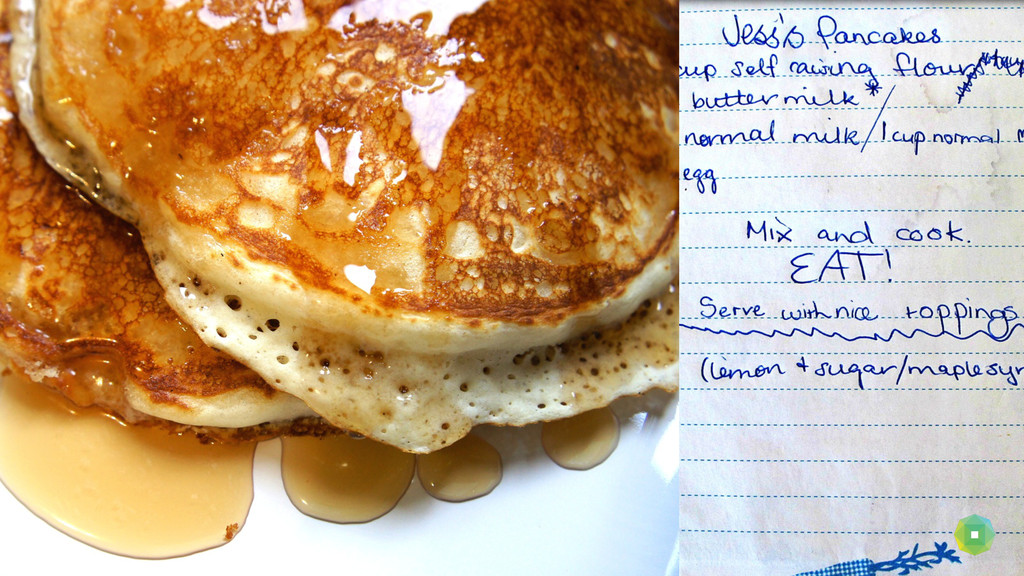 Jess's Pancakes
cup self raising flour
buttermilk*/
normal milk/1 cup normal m
egg
Mix and cook.
EAT!
Serve with nice toppings
(lemon + sugar/maple syr